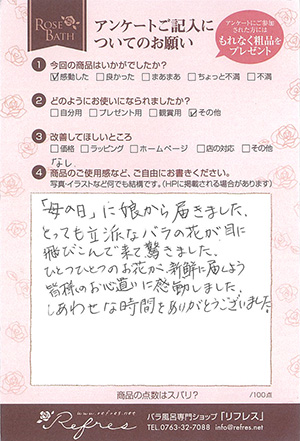 ROSE BATH
アンケートご記入に
ついてのお願い
アンケートにご参加
された方には
もれなく粗品を
プレゼント
1 今回の商品はいかがでしたか?
☑感動した □良かった □まあまあ □ちょっと不満 □不満
2 どのようにお使いになられましたか?
□自分用 □プレゼント用 □観賞用 ☑その他
3 改善してほしいところ
□価格 □ラッピング □ホームページ □店の対応 □その他
「なし」
4 商品のご使用感など、ご自由にお書きください。
写真・イラストなど何でも結構です。(HPに掲載される場合があります)
「母の日」に娘から届きました。
とっても立派なバラの花が目に
飛びこんで来て驚きました。
ひとつひとつのお花が、新鮮に届くよう
皆様のお心遣いに感動しました。
しあわせな時間をありがとうございました。
商品の点数はズバリ? /100点
www.refres.net
Refres
バラ風呂専門ショップ「リフレス」
TEL.0763-32-7088 info@refres.net